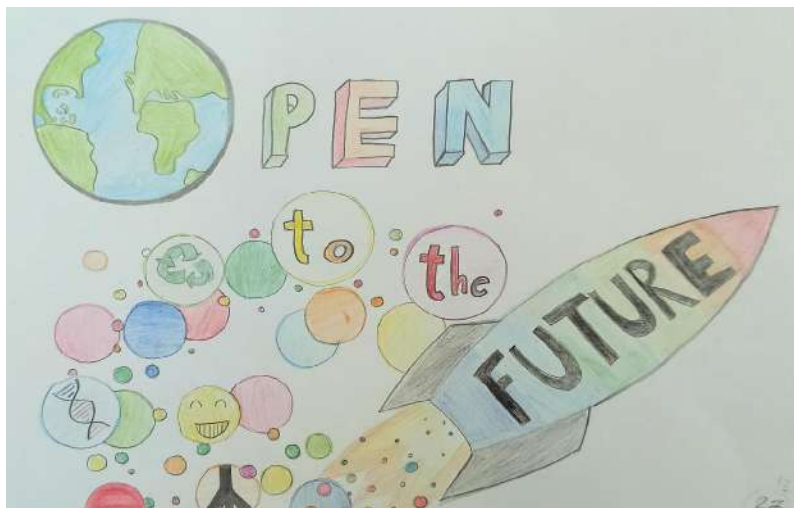 OPEN
to
the
FUTURE